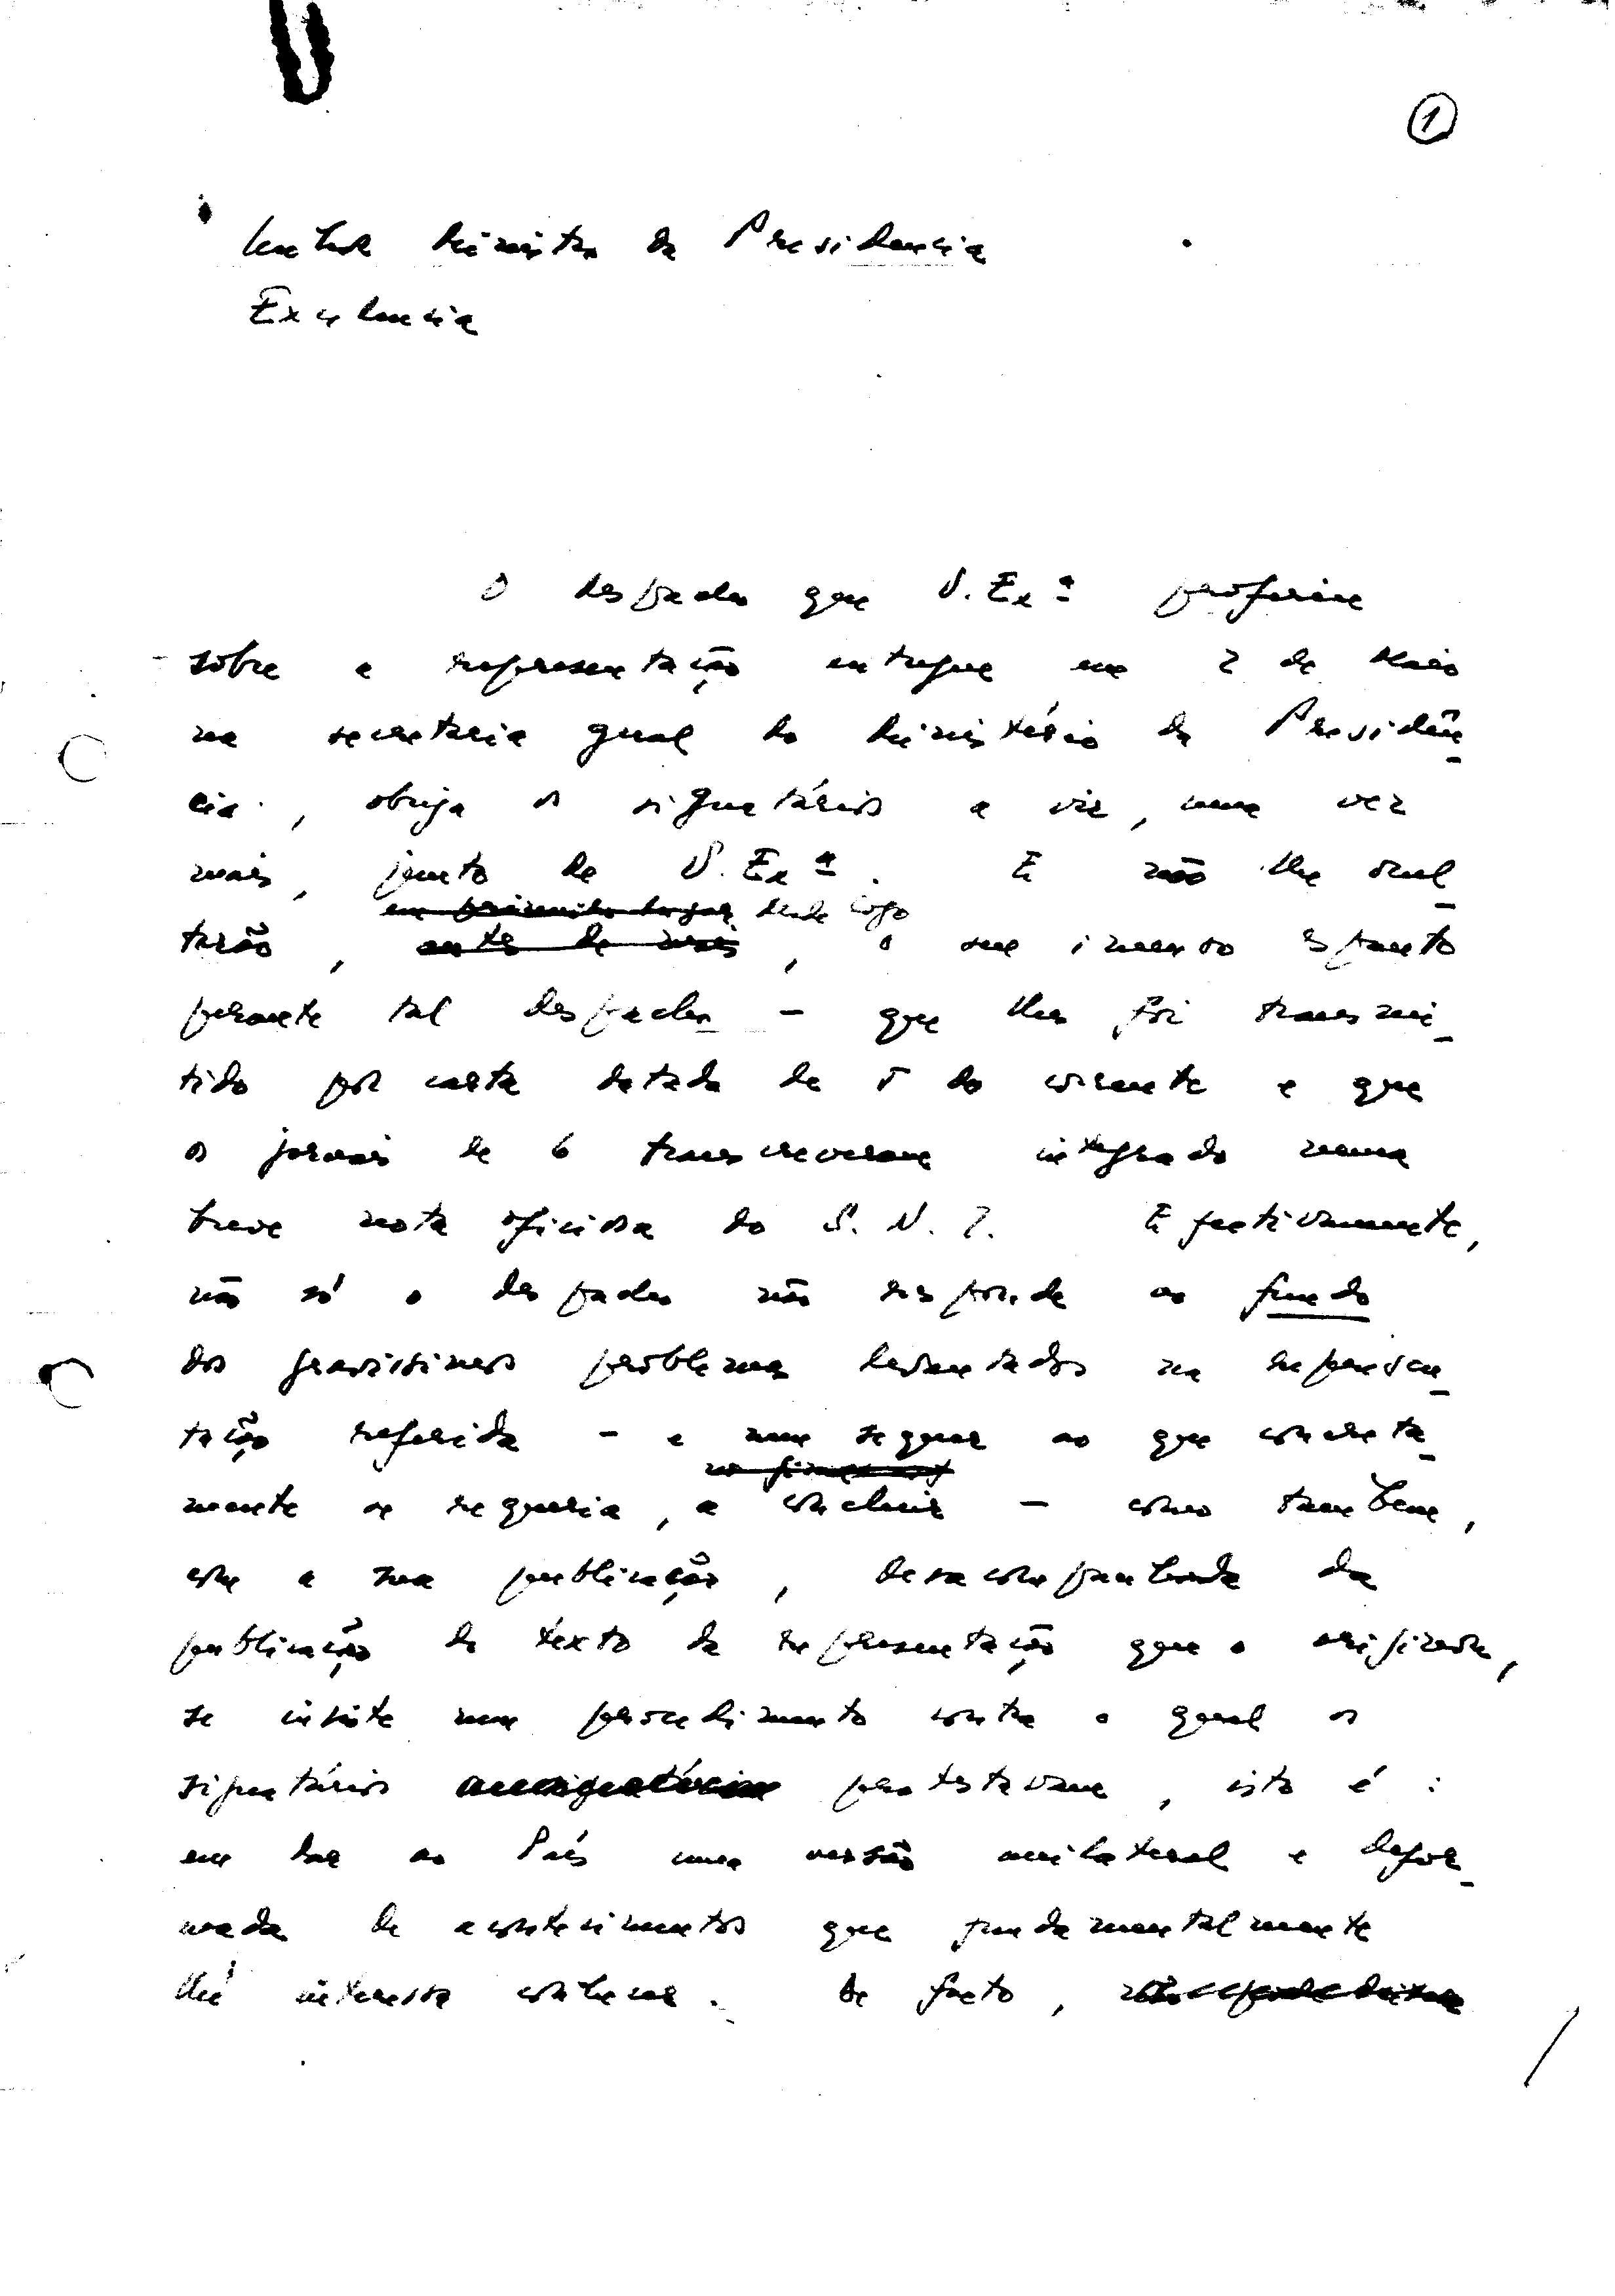 ①
Senhor Ministro da Presidencia
Excelencia
O despacho que V. Exª proferiu
sobre a representação entregue em 2 de Maio
na secretaria geral do Ministério da Presidên_
cia, obriga os signatários a vir, uma vez
mais, junto de V. Exª. E não lhe ocul_
em primeiro lugar desde logo
tarão, antes de mais, o seu imenso espanto
perante tal despacho - que lhes foi transmi_
tido por carta datada de 5 do corrente e que
os jornais de 6 transcreveram integrado numa
breve nota oficiosa do S. N. I. Efectivamente,
não só o despacho não responde ao fundo
dos gravissimos problemas levantados na represen_
tação referida - e nem sequer ao que concreta_
mente se requeria, a concluir - como tambem,
com a sua publicação, desacompanhada da
publicação do texto da representação que o originou,
se insiste num procedimento contra o qual os
signatários protestavam, isto é:
em dar ao País uma versão unilateral e defor_
mada de acontecimentos que fundamentalmente
lhe interessa conhecer. De facto, não pode deixar